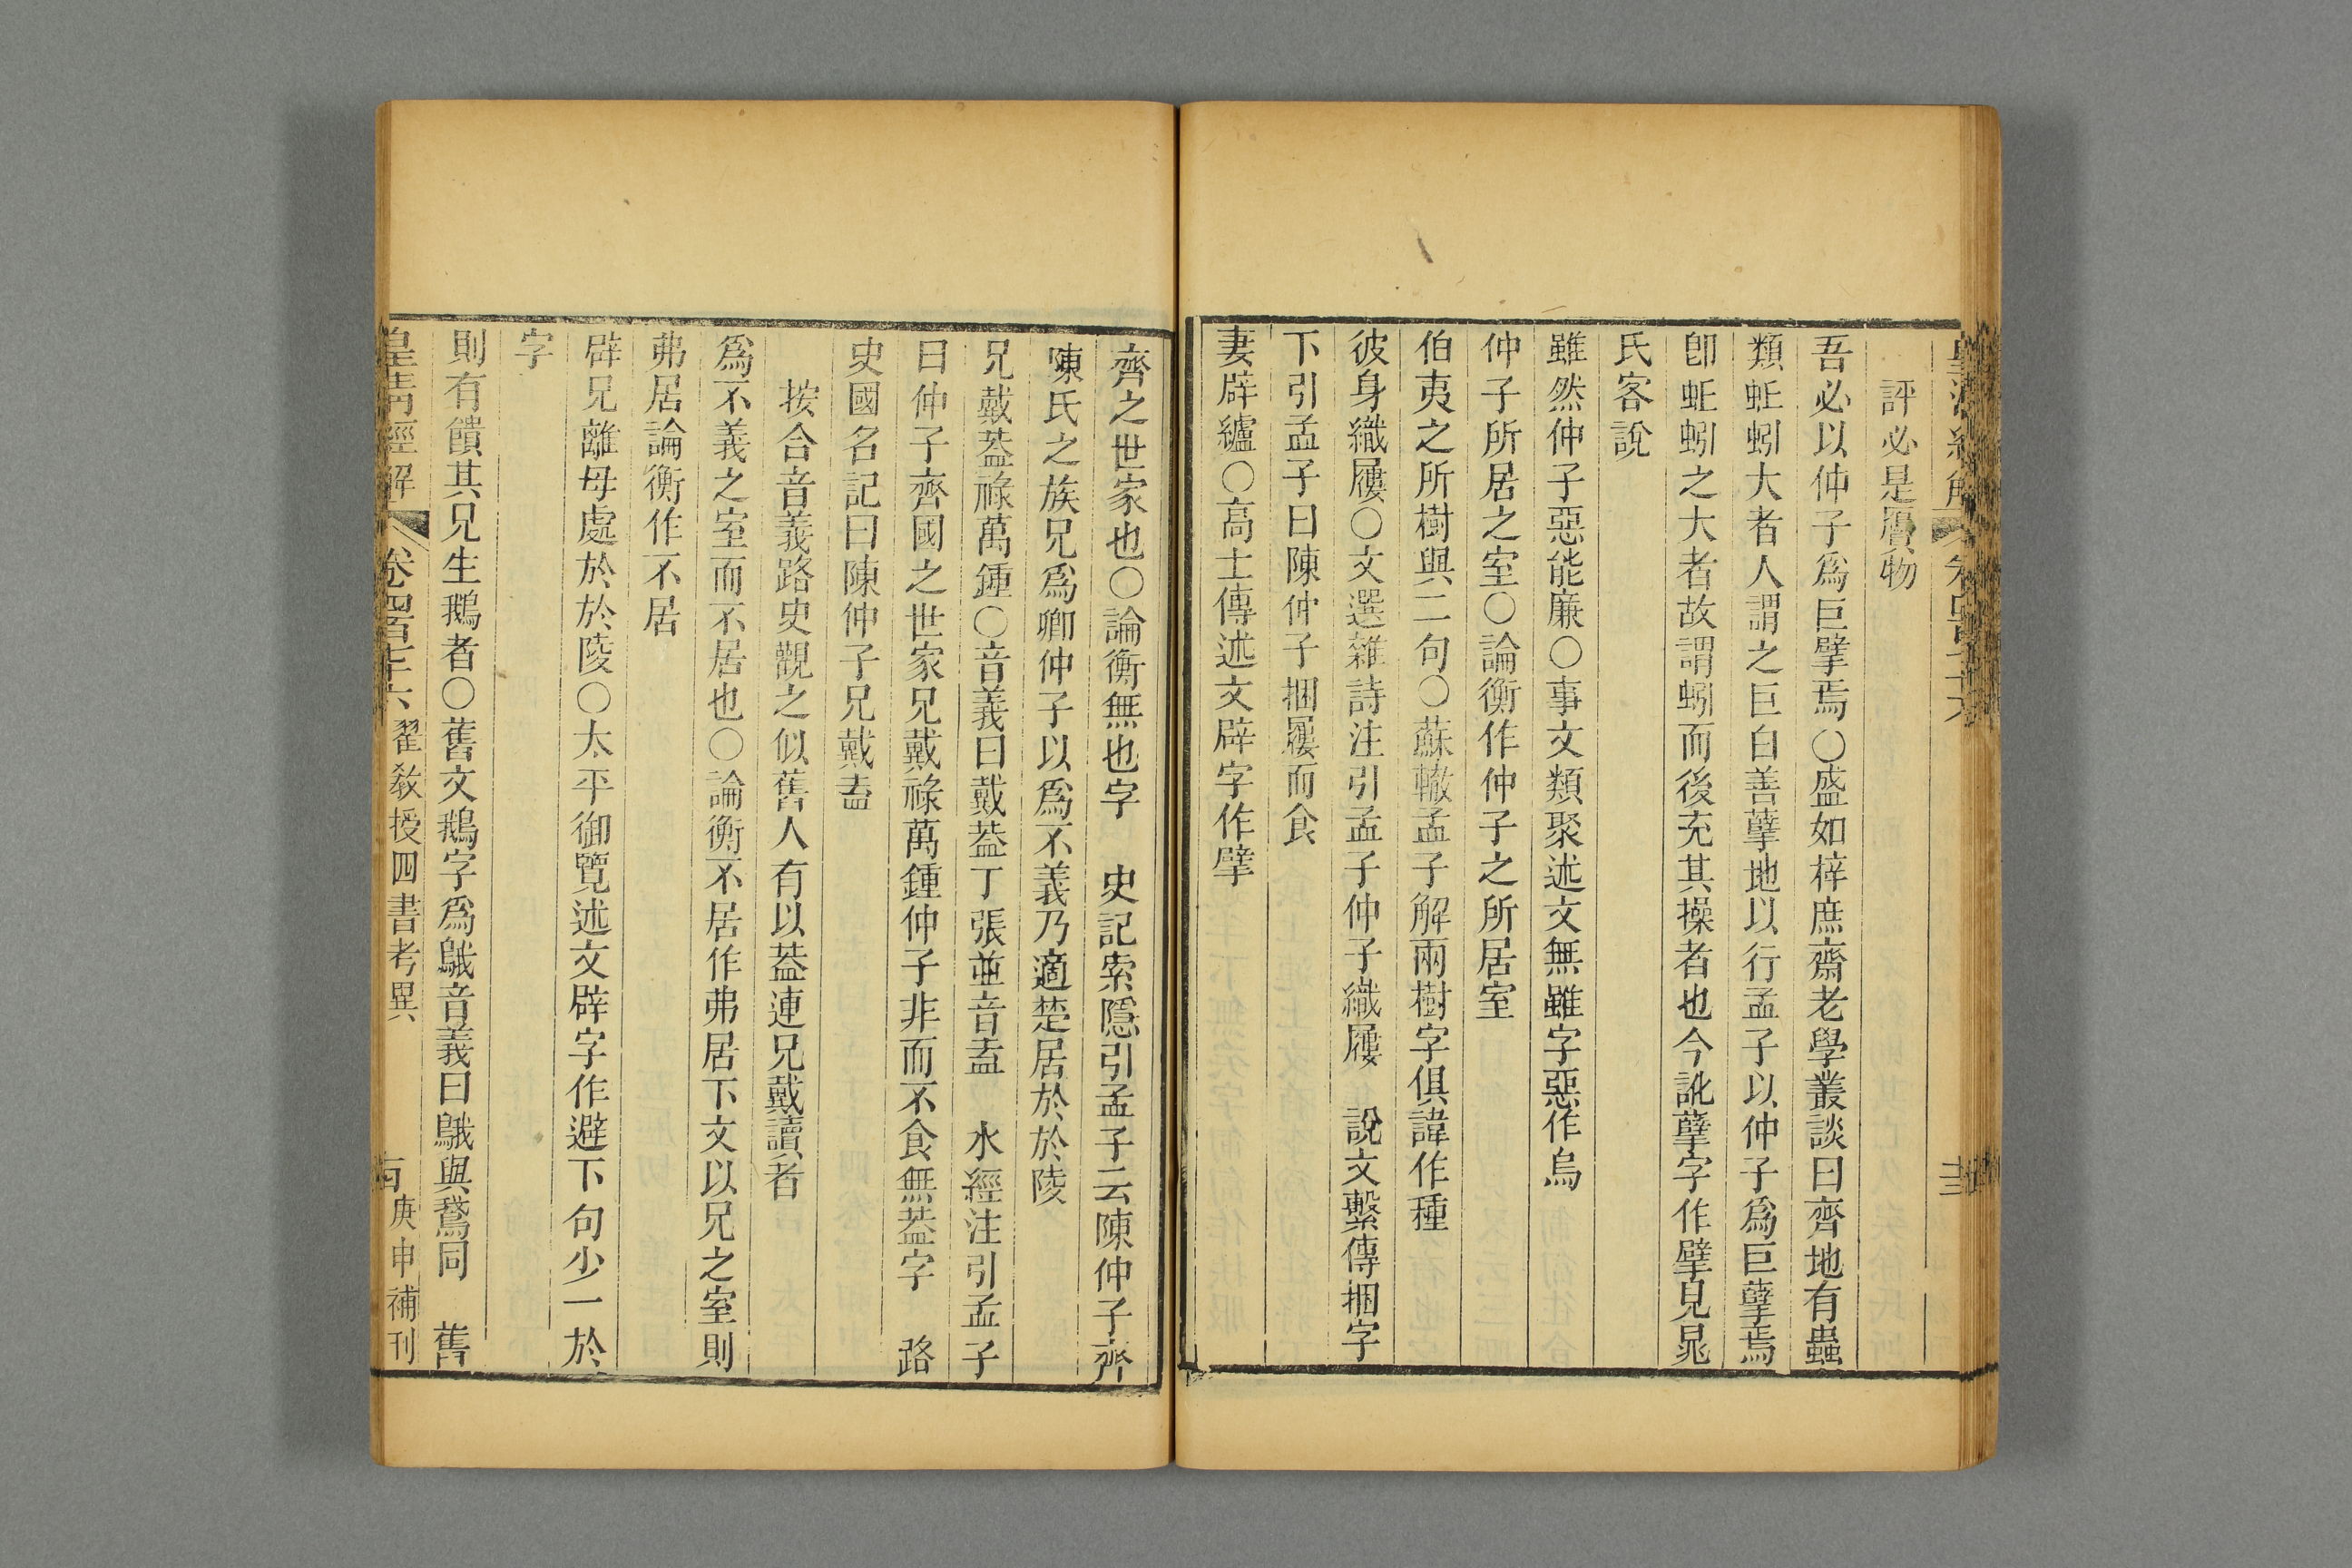 評必是贋物
吾必以仲子爲巨擘焉○盛如梓庶齋老學叢談曰齊地有蟲
類蚯蚓大者人謂之巨白善孽地以行孟子以仲子爲巨孽焉
卽蚯蚓之大者故謂蚓而後充其操者也今訛孽字作擘見晁
氏客說
雖然仲子惡能廉○事文類聚述文無雖字惡作烏
仲子所居之室○論衡作仲子之所居室
伯夷之所樹與二句○蘇轍孟子解兩樹字俱諱作種
彼身織屨○文選雜詩注引孟子仲子織屨　說文繫傳捆字
下引孟子曰陳仲子捆屨而食
妻辟纑○高士傳述文辟字作擘
齊之世家也○論衡無也字　史記索隱引孟子云陳仲子齊
陳氏之族兄爲卿仲子以爲不義乃適楚居於於陵
兄戴葢祿萬鍾○音義曰戴葢丁張並音盍　水經注引孟子
曰仲子齊國之世家兄戴祿萬鍾仲子非而不食無葢字　路
史國名記曰陳仲子兄戴盍
按合音義路史觀之似舊人有以葢連兄戴讀者
爲不義之室而不居也○論衡不居作弗居下文以兄之室則
弗居論衡作不居
辟兄離母處於於陵○太平御覽述文辟字作避下句少一於
字
則有饋其兄生鵝者○舊文鵝字爲鵦音義曰鵦與鵞同　舊
皇淸經解　卷四百七十六　翟敎授四書考異　庚申補刊